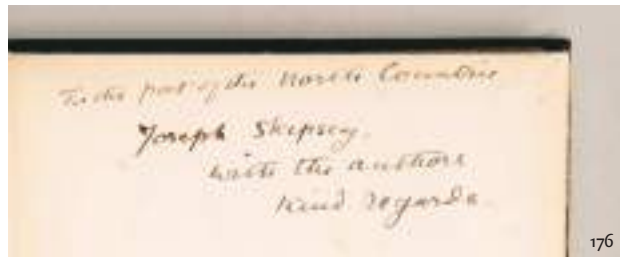 To the poet of the North Countrie
Joseph Skipsey.
with the authors
kind regards.
176